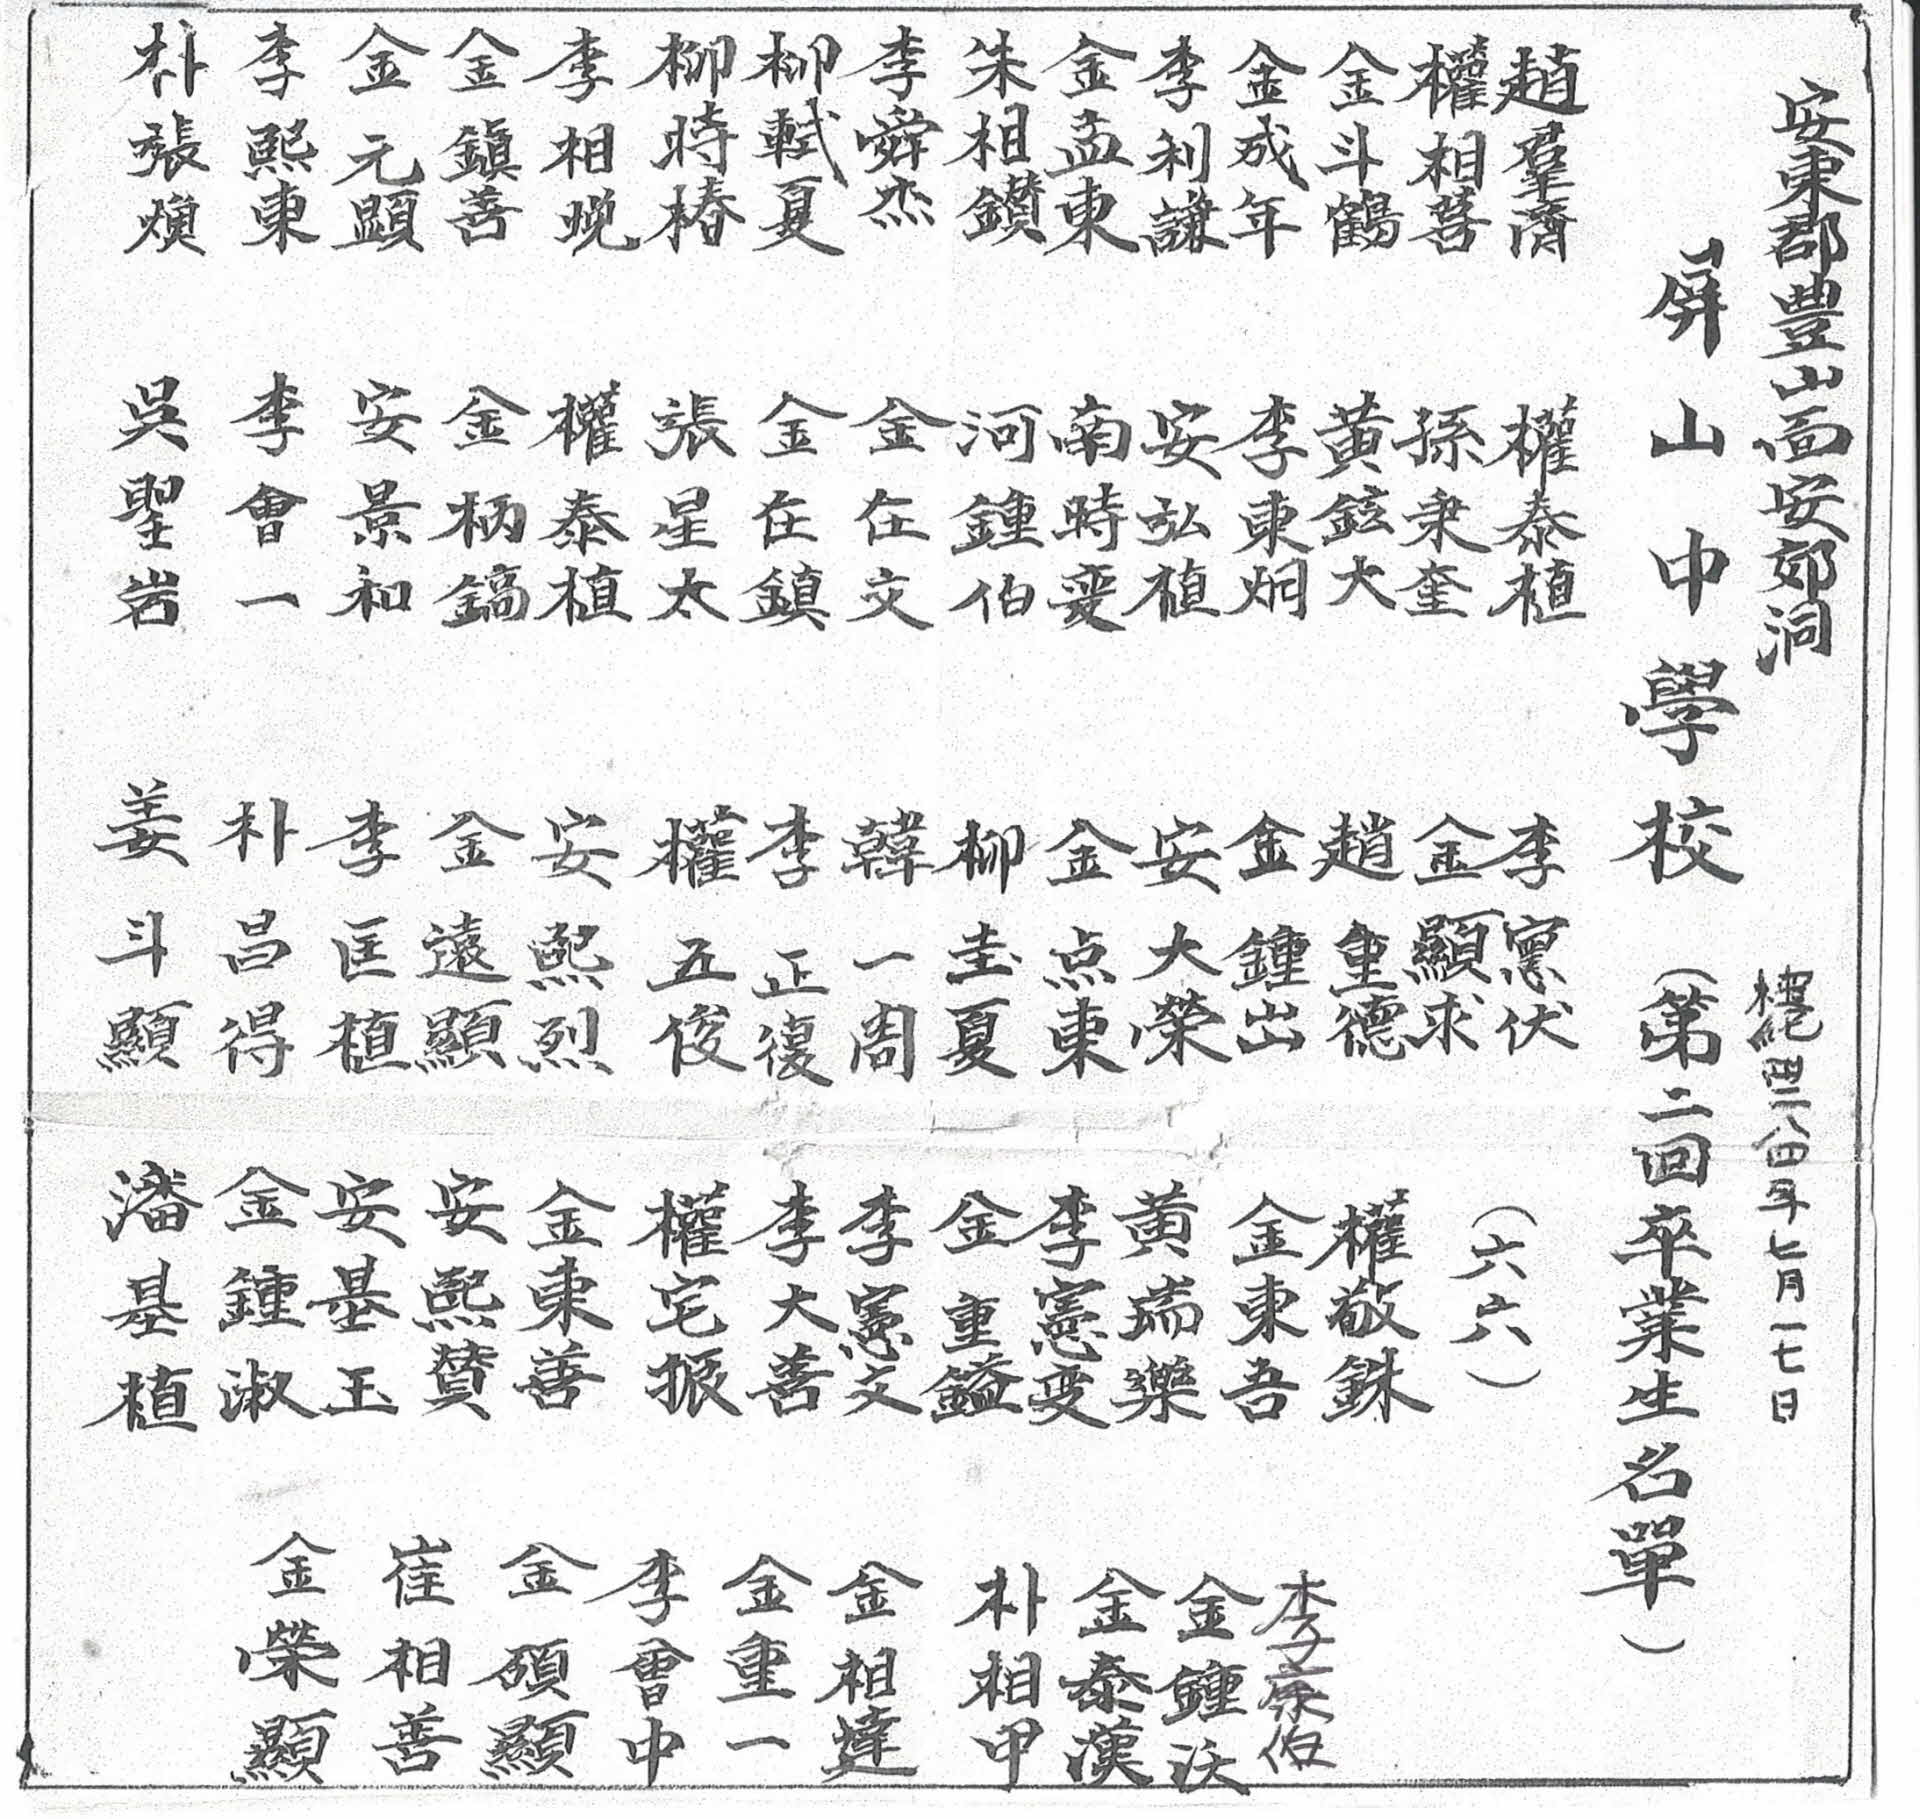 安東郡豊山面安郊洞
檀紀四二八四年七月一七日
屛山中學校
(第二回卒業生名單)
(六六)
趙羣濟
權相菩
金斗鶴
金成年
李利謙
金孟東
朱相鑽
李舜杰
柳軾夏
柳時椿
李相晩
金鎭善
金元顯
李熙東
朴張煥
權泰植
孫秉奎
黃鉉大
李東炯
安弘植
南時雯
河鍾伯
金在文
金在鎭
張星太
權泰植
金柄鎬
安景和
李會一
吳聖岩
李憲伏
金顯求
趙重德
金鍾岀
安大榮
金点東
柳圭夏
韓一周
李正復
權五俊
安熙烈
金遠顯
李匡植
朴昌得
姜斗顯
權敬銖
金東吾
黃瑞樂
李憲雯
金重鎰
李憲文
李大善
權宅振
金東善
安熙贊
安基玉
金鍾淑
潘基植
金鍾沃
金泰漢
朴相甲
金相達
金重一
李會中
金碩顯
崔相善
金榮顯